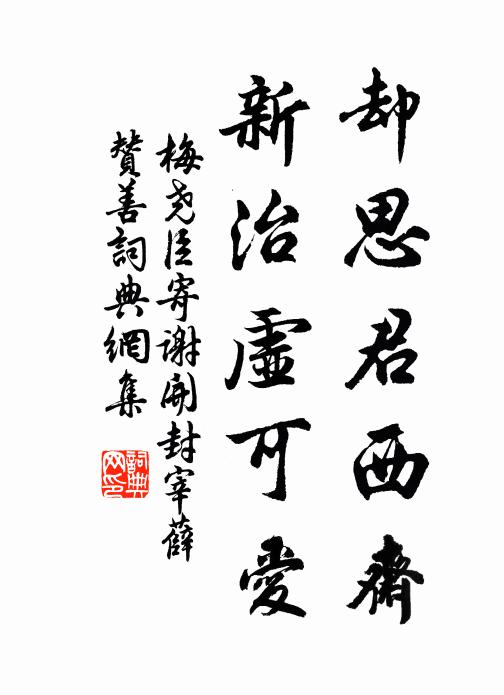 却思君西齋
新治虛可愛
梅堯臣寄謝開封宰薛
贊善詞典網集
詞典網印